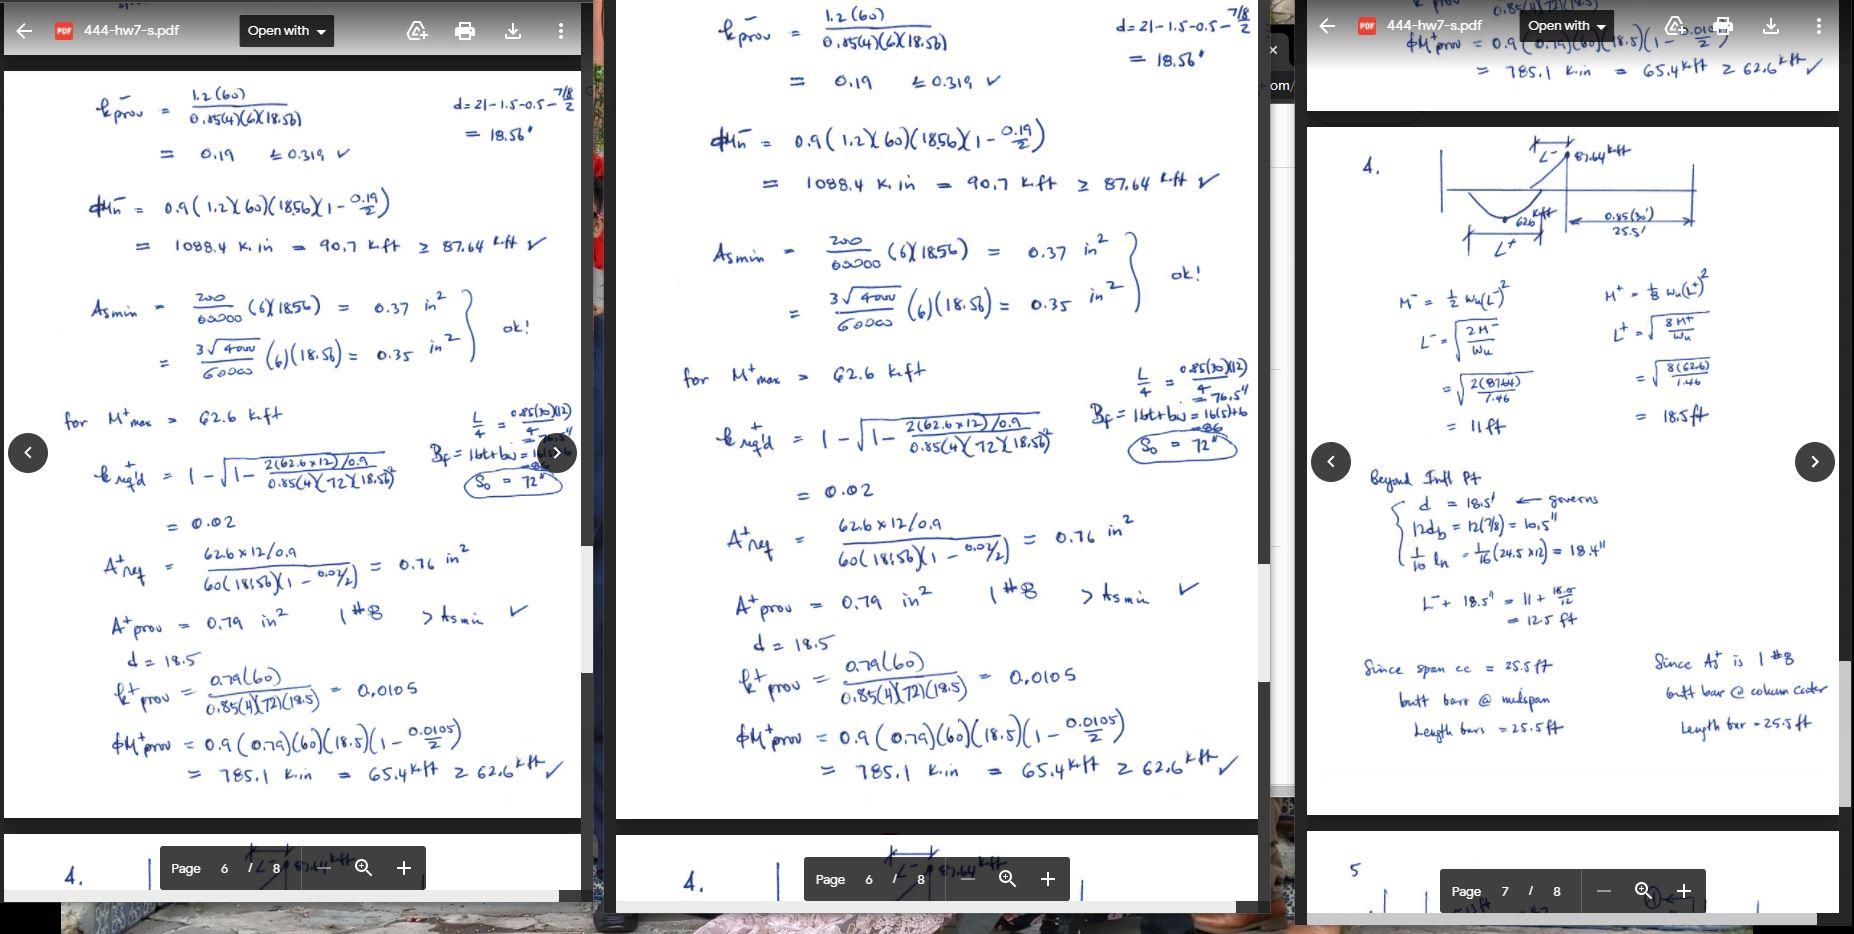 444-hw7-s.pdf
Open with
k⁻prov = 1.2(60) / 0.85(4)(6)(18.56)
d = 21 - 1.5 - 0.5 - 7/8/2
= 18.56"
= 0.19 ≤ 0.319 ✓
ϕMn⁻ = 0.9(1.2)(60)(18.56)(1 - 0.19/2)
= 1088.4 k.in = 90.7 k.ft ≥ 87.64 k.ft ✓
Asmin = 200/60000 (6)(18.56) = 0.37 in²
= 3√4000/60000 (6)(18.56) = 0.35 in²
ok!
for M⁺max = 62.6 k.ft
L/4 = 0.85(30)(12)/4
= 76.5"
k⁺req'd = 1 - √1 - 2(62.6x12)/0.9 / 0.85(4)(72)(18.56)²
So = 72"
= 0.02
A⁺req = 62.6x12/0.9 / 60(18.56)(1 - 0.02/2) = 0.76 in²
A⁺prov = 0.79 in² 1#8 > Asmin ✓
d = 18.5
k⁺prov = 0.79(60) / 0.85(4)(72)(18.5) = 0.0105
ϕM⁺prov = 0.9(0.79)(60)(18.5)(1 - 0.0105/2)
= 785.1 k.in = 65.4 k.ft ≥ 62.6 k.ft ✓
4.
87.64 k.ft
Page 6 / 8
k⁻prov = 1.2(60) / 0.85(4)(6)(18.56)
d = 21 - 1.5 - 0.5 - 7/8/2
= 18.56"
= 0.19 ≤ 0.319 ✓
ϕMn⁻ = 0.9(1.2)(60)(18.56)(1 - 0.19/2)
= 1088.4 k.in = 90.7 k.ft ≥ 87.64 k.ft ✓
Asmin = 200/60000 (6)(18.56) = 0.37 in²
= 3√4000/60000 (6)(18.56) = 0.35 in²
ok!
for M⁺max = 62.6 k.ft
L/4 = 0.85(30)(12)/4
= 76.5"
Bf = 16t+bw = 16(5)+6
= 86
k⁺req'd = 1 - √1 - 2(62.6x12)/0.9 / 0.85(4)(72)(18.56)²
So = 72"
= 0.02
A⁺req = 62.6x12/0.9 / 60(18.56)(1 - 0.02/2) = 0.76 in²
A⁺prov = 0.79 in² 1#8 > Asmin ✓
d = 18.5
k⁺prov = 0.79(60) / 0.85(4)(72)(18.5) = 0.0105
ϕM⁺prov = 0.9(0.79)(60)(18.5)(1 - 0.0105/2)
= 785.1 k.in = 65.4 k.ft ≥ 62.6 k.ft ✓
4.
87.64 k.ft
Page 6 / 8
om/
444-hw7-s.pdf
Open with
ϕM⁺prov = 0.9(0.79)(60)(18.5)(1 - 0.0105/2)
= 785.1 k.in = 65.4 k.ft ≥ 62.6 k.ft ✓
4.
L⁻
87.64 k.ft
62.6 k.ft
0.85(30')
25.5'
L⁺
M⁻ = 1/2 Wu(L⁻)²
M⁺ = 1/8 Wu(L⁺)²
L⁻ = √2M⁻/Wu
L⁺ = √8M⁺/Wu
= √2(87.64)/1.46
= √8(62.6)/1.46
= 11 ft
= 18.5 ft
Beyond Infl Pt
d = 18.5" ← governs
12db = 12(7/8) = 10.5"
1/16 ln = 1/16 (24.5 x 12) = 18.4"
L⁻ + 18.5" = 11 + 18.5/12
= 12.5 ft
Since span cc = 25.5 ft
butt bars @ midspan
Length bars = 25.5 ft
Since As⁺ is 1 #8
butt bar @ column center
Length bar = 25.5 ft
5
Page 7 / 8